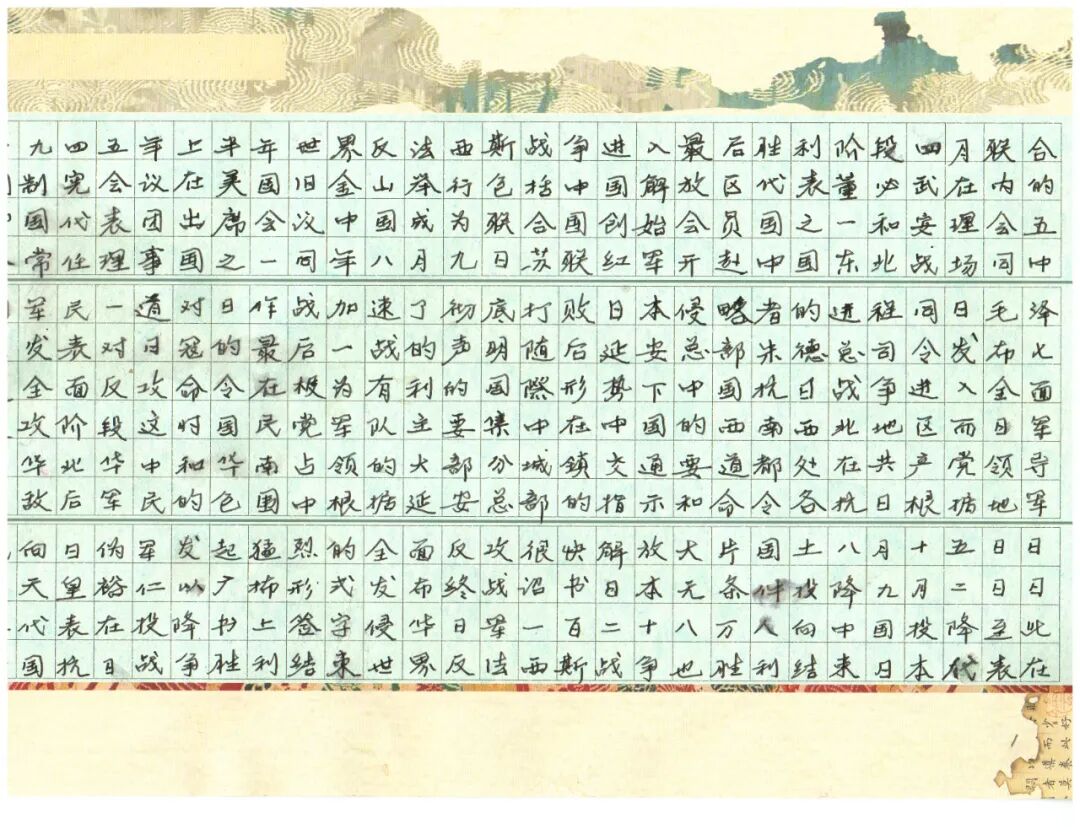 九四五年上半年世界反法西斯战争进入最后胜利阶段四月联合
制宪会议在美国旧金山举行包括中国解放区代表董必武在内的
国代表团出席会议中国成为联合国创始会员国之一和安理会五
常任理事国之一同年八月九日苏联红军开赴中国东北战场同中
军民一道对日作战加速了彻底打败日本侵略者的进程同日毛泽
发表对日寇的最后一战的声明随后延安总部朱德总司令发布七
全面反攻命令在极为有利的国際形势下中国抗日战争进入全面
攻阶段这时国民党军队主要集中在中国的西南西北地区而日军
华北华中和华南占领的大部分城鎮交通要道都处在共产党领导
敌后军民的包围中根据延安总部的指示和命令各抗日根据地军
向日伪军发起猛烈的全面反攻很快解放大片国土八月十五日日
天皇裕仁以广播形式发布终战诏书日本无条件投降九月二日日
代表在投降书上签字侵华日军一百二十八万人向中国投降至此
国抗日战争胜利结束世界反法西斯战争也胜利结束日本代表在